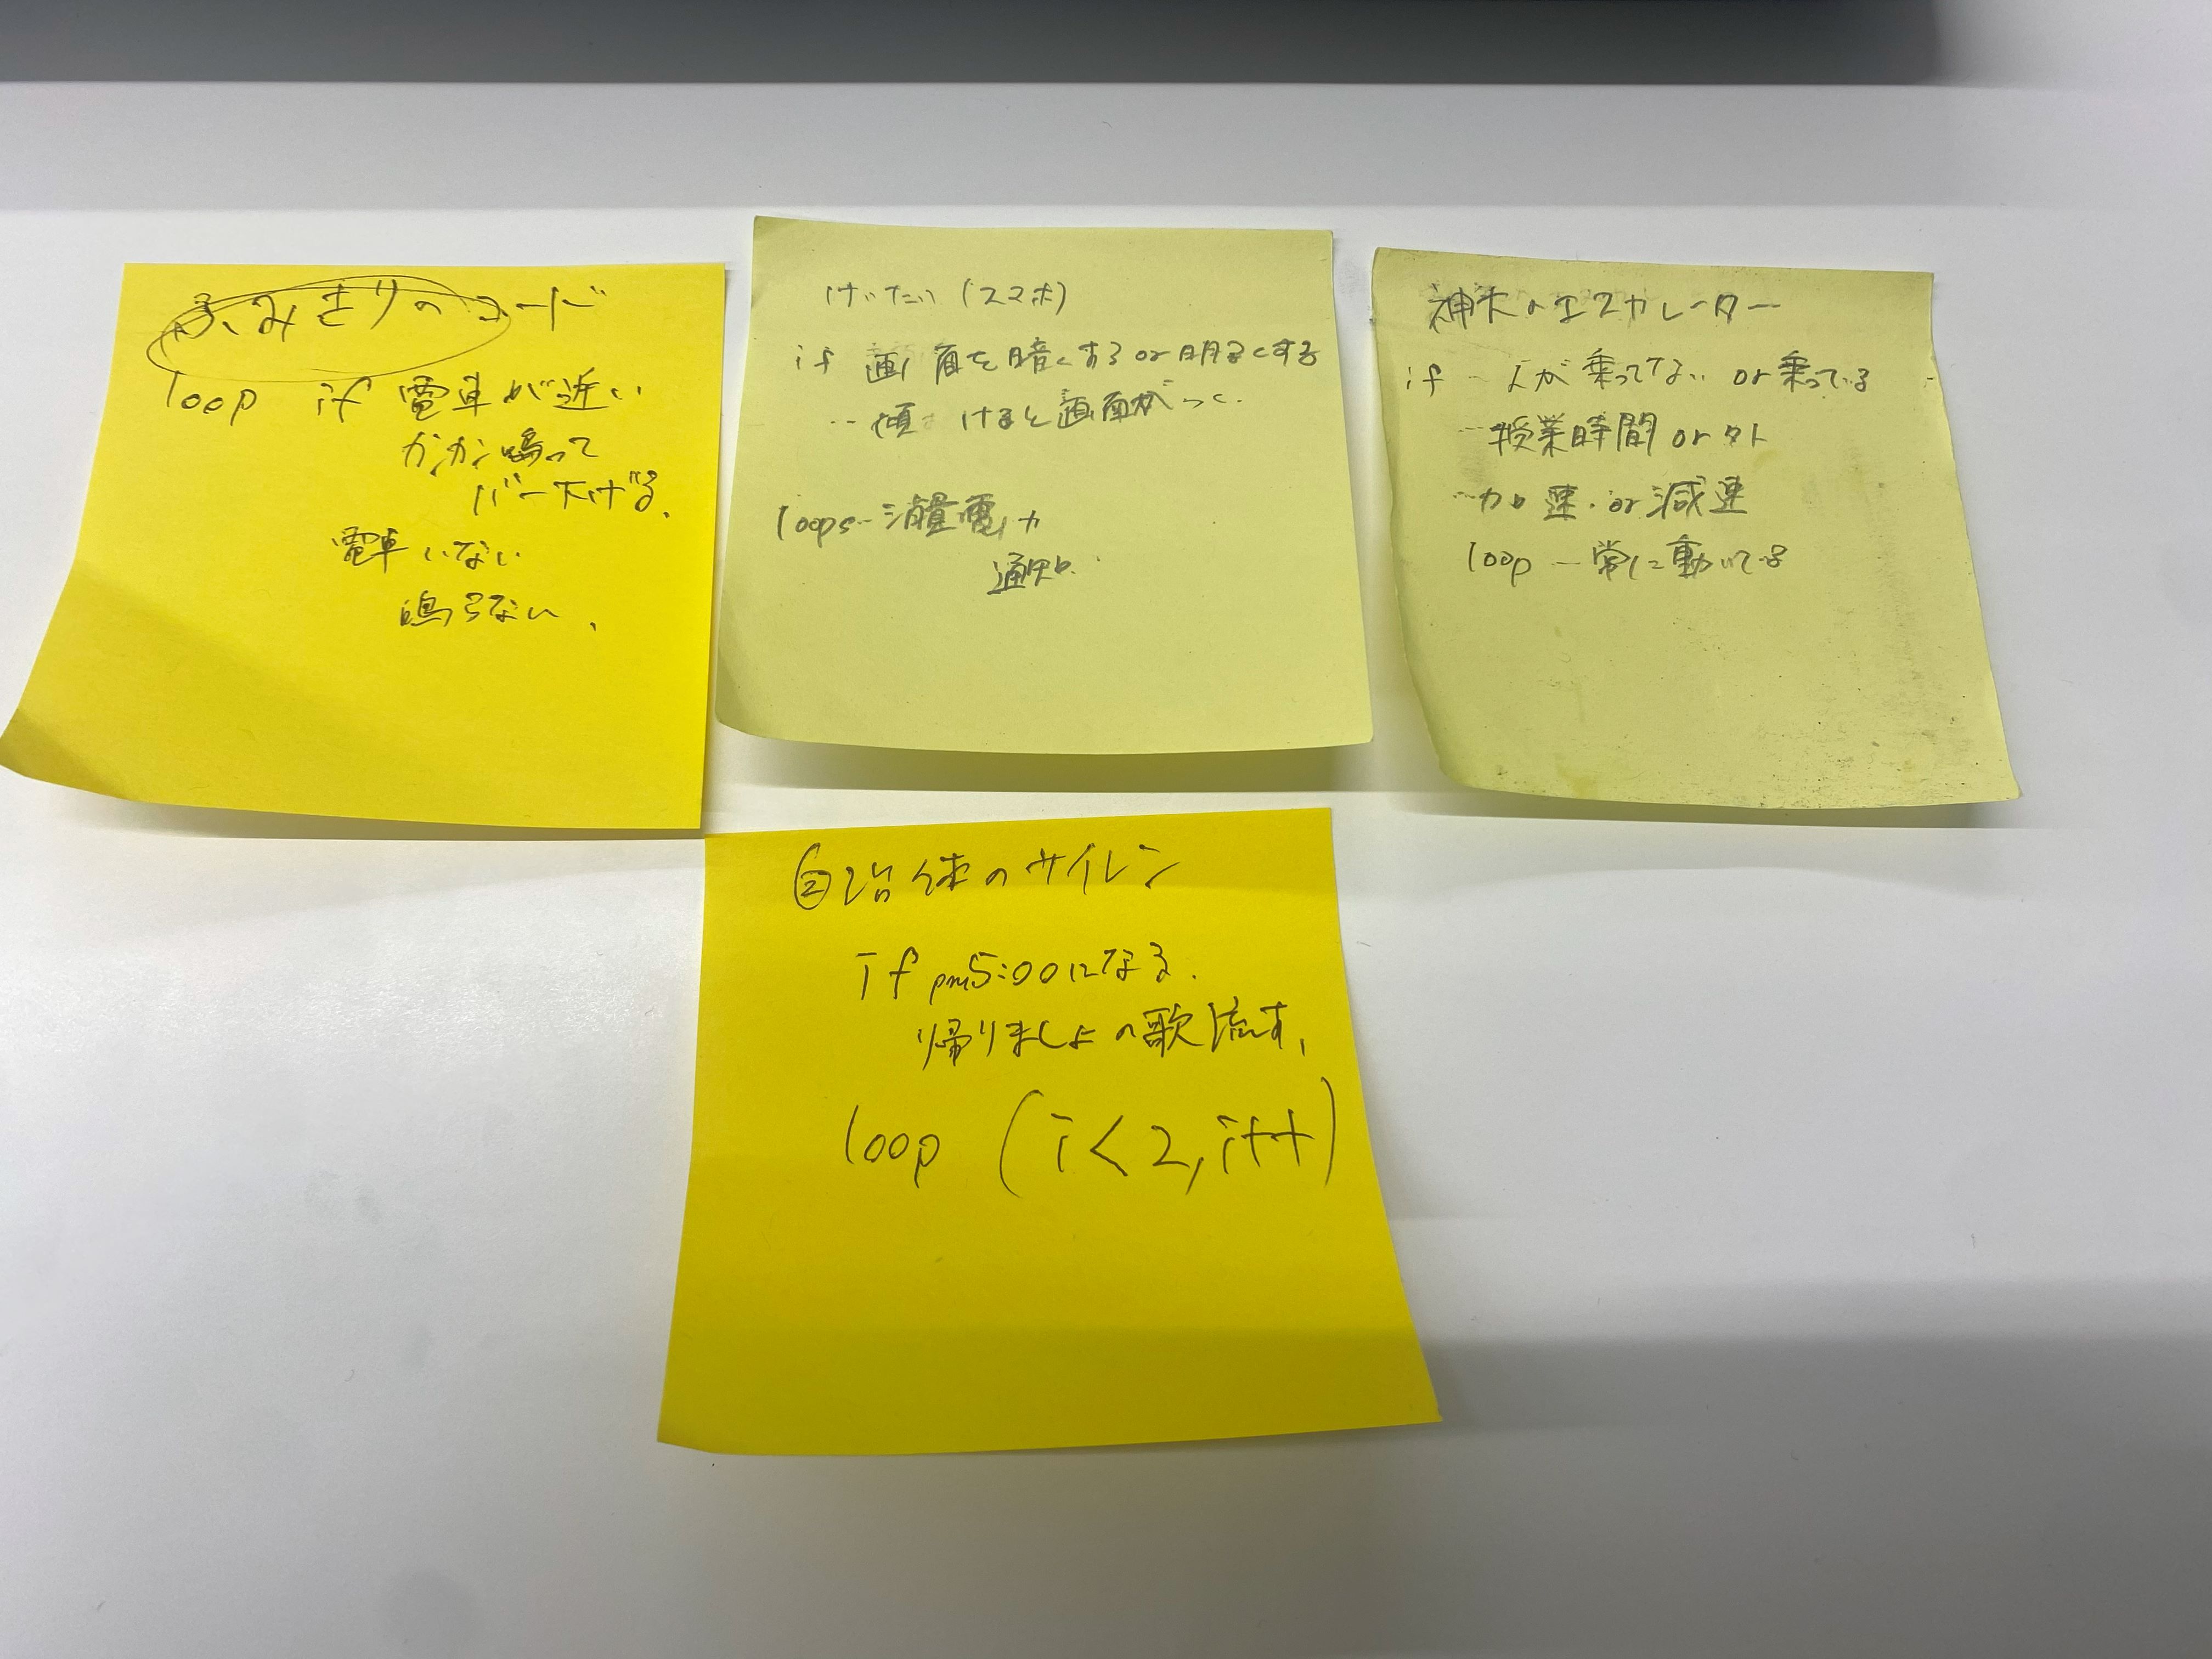 ふみきりのコード
loop if 電車が近い
カンカン鳴って
バー下げる.
電車いない
鳴らない.
けいたい (スマホ)
if 画面を暗くする or 明るくする
… 傾けると画面がつく.
loops… 消費電力
通知.
のエスカレーター
if … 人が乗ってない or 乗っている
… 授業時間 or 外
… 加速. or 減速
loop … 常に動いてる
自治体のサイレン
If pm5:00になる.
帰りましょの歌流す,
loop (i<2, i++)